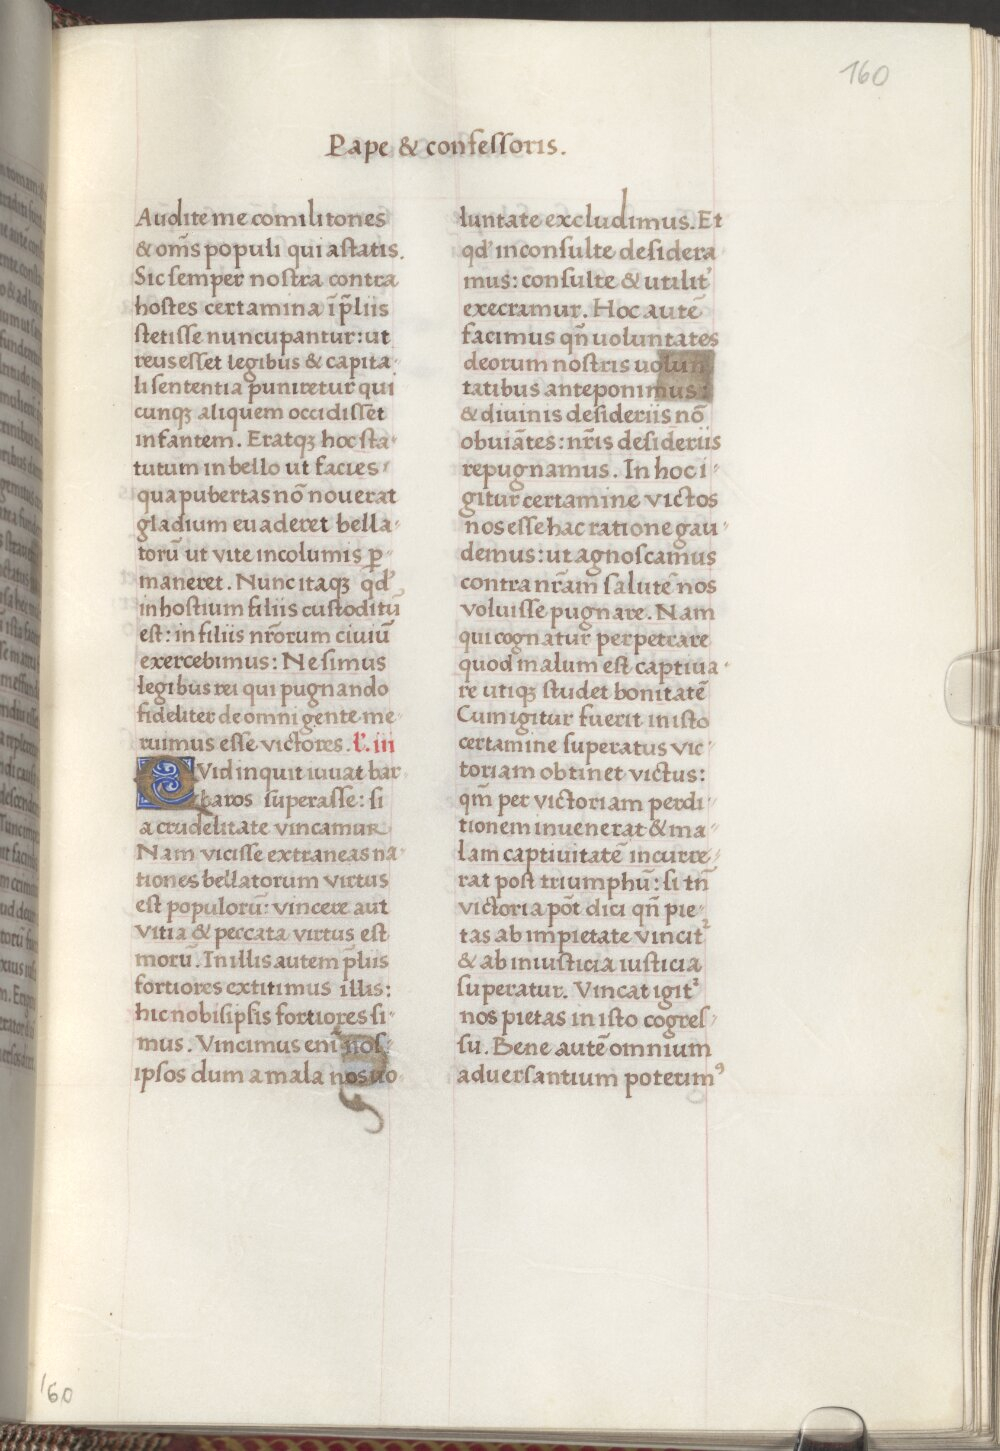 160
Pape & confessoris.
Audite me comilitones
& om̄s populi qui astatis.
Sic semper nostra contra
hostes certamina ī p̄liis
stetisse nuncupantur: ut
reus esset legibus & capita
li sententia puniretur qui
cunq; aliquem occidisset
infantem. Eratq; hoc sta-
tutum in bello ut facies
qua pubertas nō nouerat
gladium euaderet bella-
torū ut vite incolumis p̱-
maneret. Nunc itaq; qd'
in hostium filiis custoditū
est: in filiis nr̄orum ciuiū
exercebimus: Ne simus
legibus rei qui pugnando
fideliter de omni gente me
ruimus esse victores. l'. iii
QVid inquit iuuat bar
baros superasse: si
a crudelitate vincamur
Nam vicisse extraneas na-
tiones bellatorum virtus
est populorū: vincere aut
vitia & peccata virtus est
morū. In illis autem p̄liis
fortiores extitimus illis:
hic nobis ipsis fortiores si-
mus. Vincimus enī nos-
ipsos dum a mala nos uo
luntate excludimus. Et
qd' inconsulte desidera
mus: consulte & utilit'
execramur. Hoc autē
facimus qn̄ uoluntates
deorum nostris uolun
tatibus anteponimus:
& diuinis desideriis nō
obuiātes: nr̄is desideriis
repugnamus. In hoc i-
gitur certamine victos
nos esse hac ratione gau-
demus: ut agnoscamus
contra nr̄am salutē nos
voluisse pugnare. Nam
qui cognatur perpetrare
quod malum est captiua-
re utiq; studet bonitatē
Cum igitur fuerit in isto
certamine superatus vic-
toriam obtinet victus:
qm̄ per victoriam perdi-
tionem inuenerat & ma-
lam captiuitatē incurre-
rat post triumphū: si tn̄
victoria pōt dici qn̄ pie-
tas ab impietate vincit²
& ab iniusticia iusticia
superatur. Vincat igit²
nos pietas in isto cogres-
su. Bene autē omnium
aduersantium poterimꝰ
160